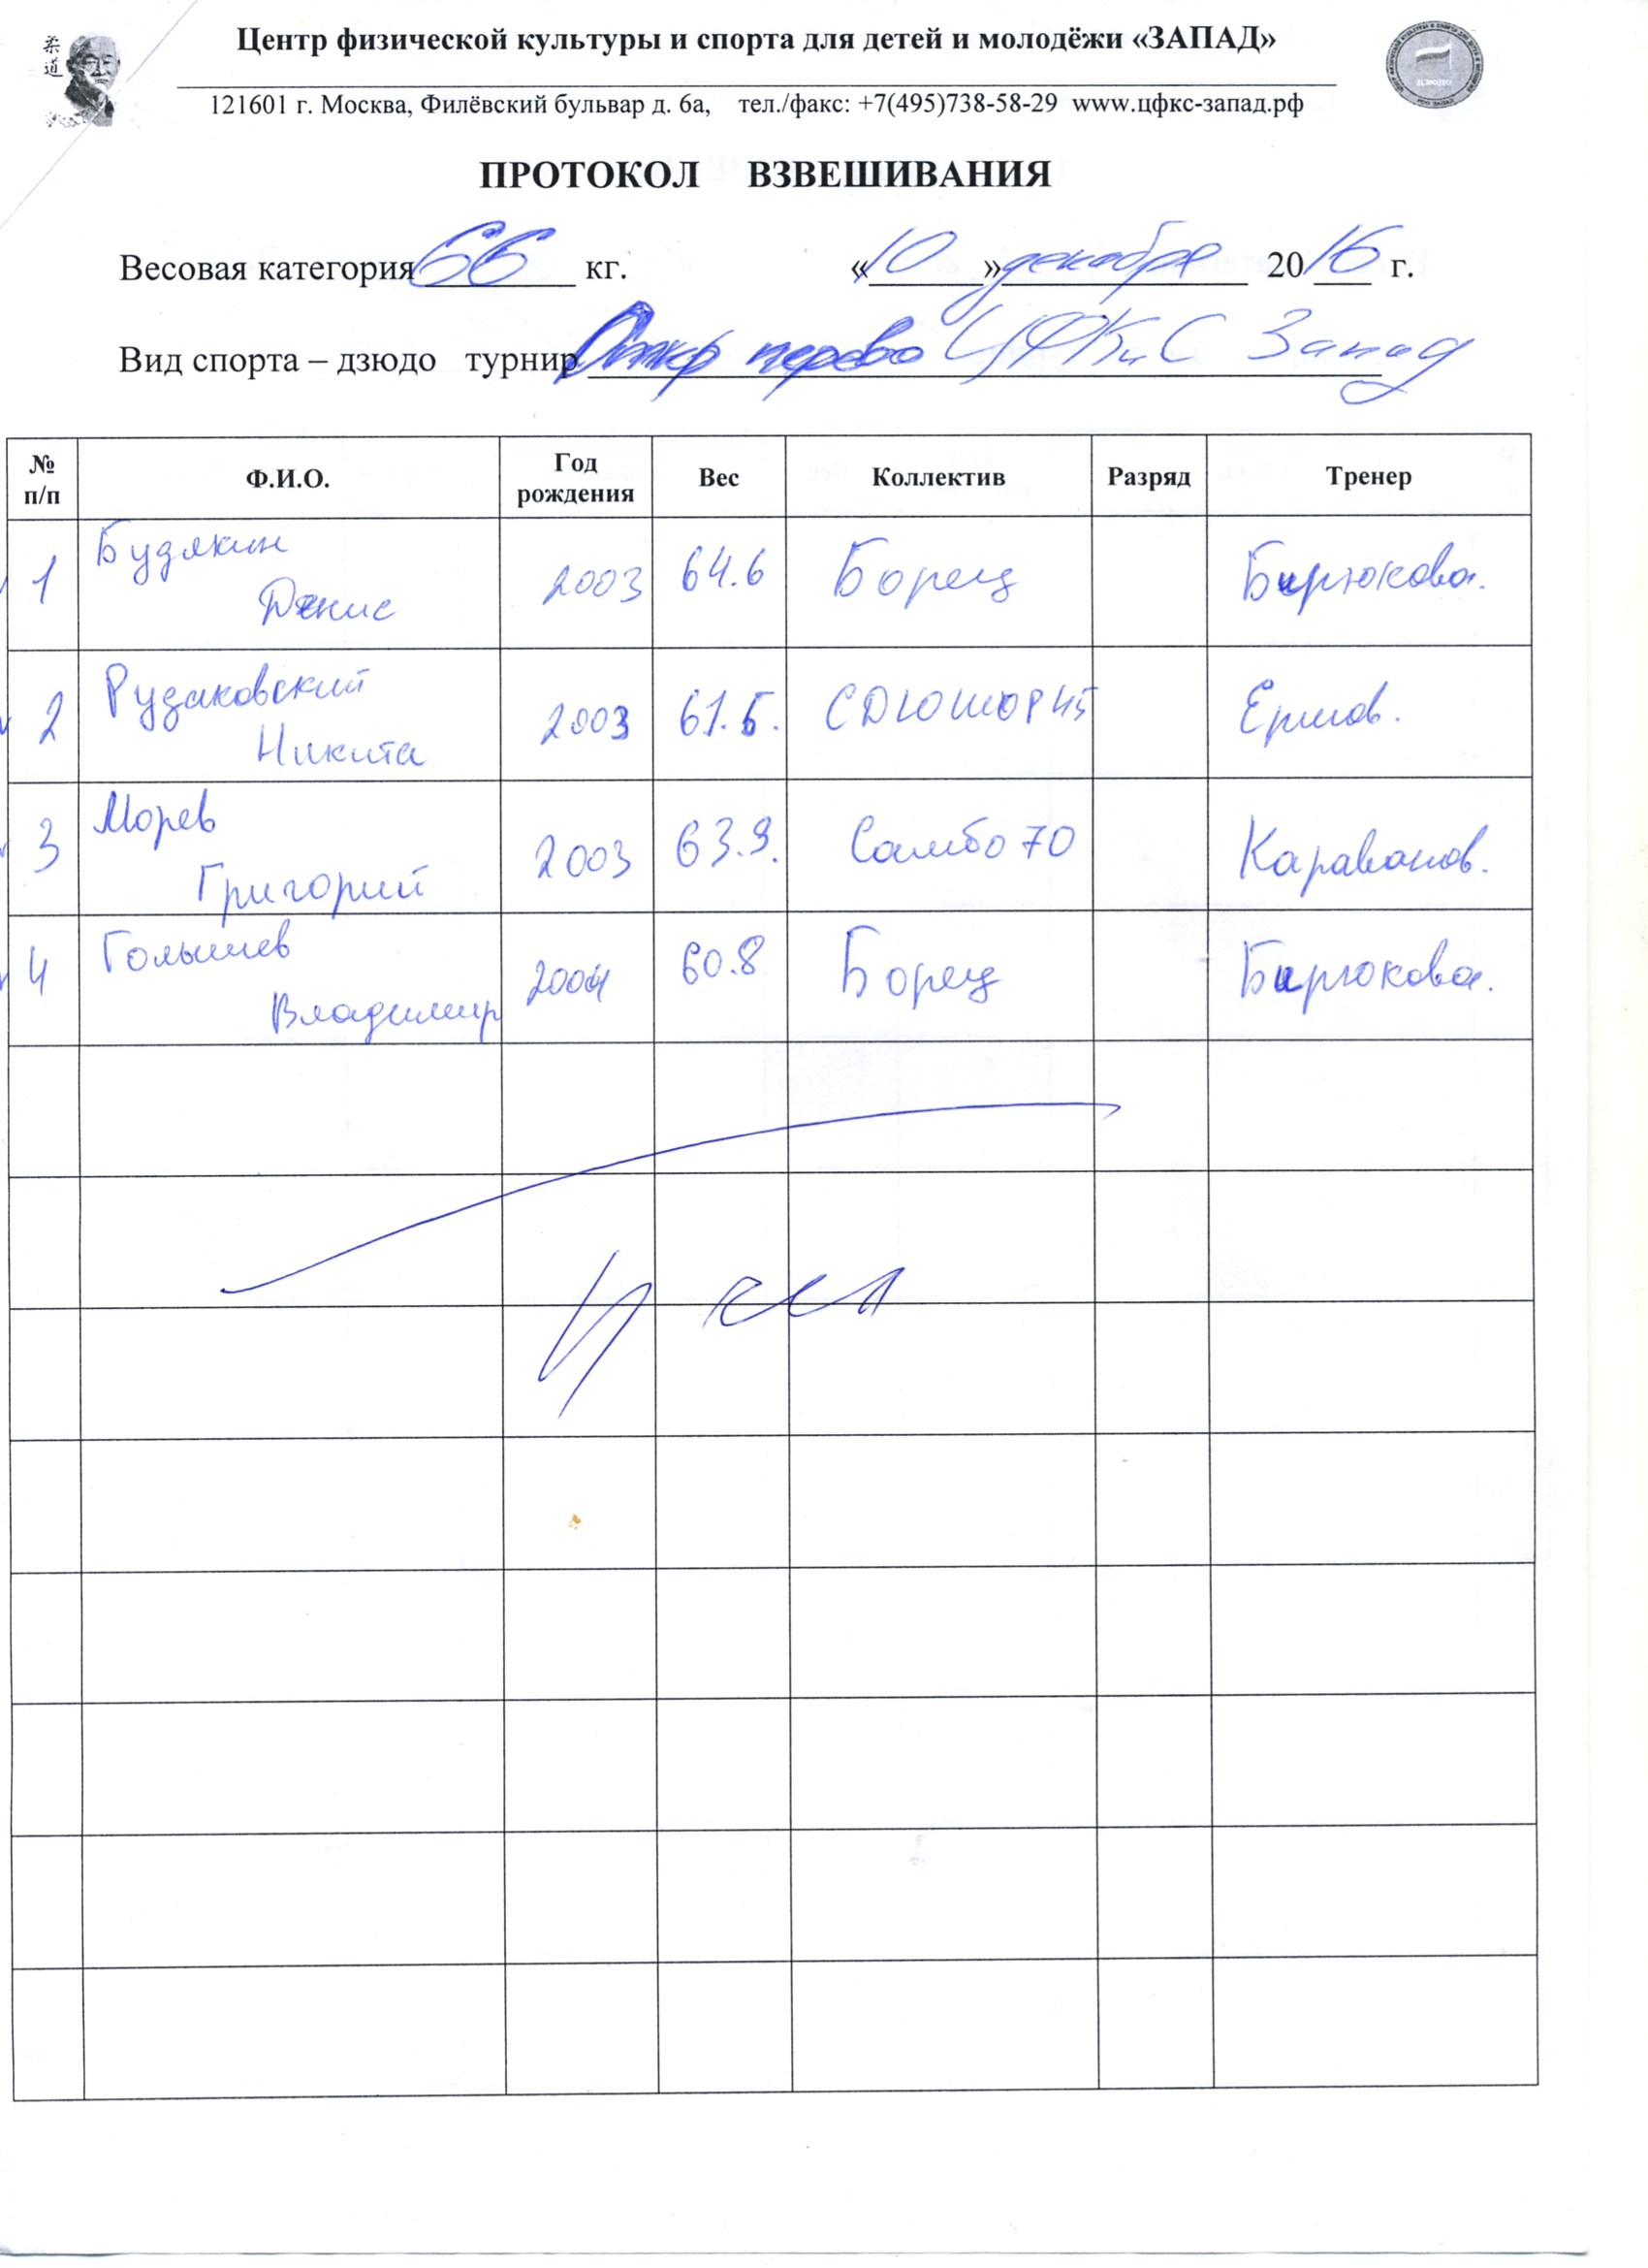 柔
道
Центр физической культуры и спорта для детей и молодёжи «ЗАПАД»
121601 г. Москва, Филёвский бульвар д. 6а, тел./факс: +7(495)738-58-29 www.цфкс-запад.рф
ПРОТОКОЛ ВЗВЕШИВАНИЯ
Весовая категория 66 кг. «10» декабря 2016 г.
Вид спорта – дзюдо турнир Откр перво ЦФКиС Запад
№ п/п Ф.И.О. Год рождения Вес Коллектив Разряд Тренер
1 Будякин Денис 2003 64.6 Борец Бирюкова.
2 Рудаковский Никита 2003 61.5. СДЮШОР 45 Ермов.
3 Морев Григорий 2003 63.9. Самбо 70 Караванов.
4 Голышев Владимир 2004 60.8 Борец Бирюкова.